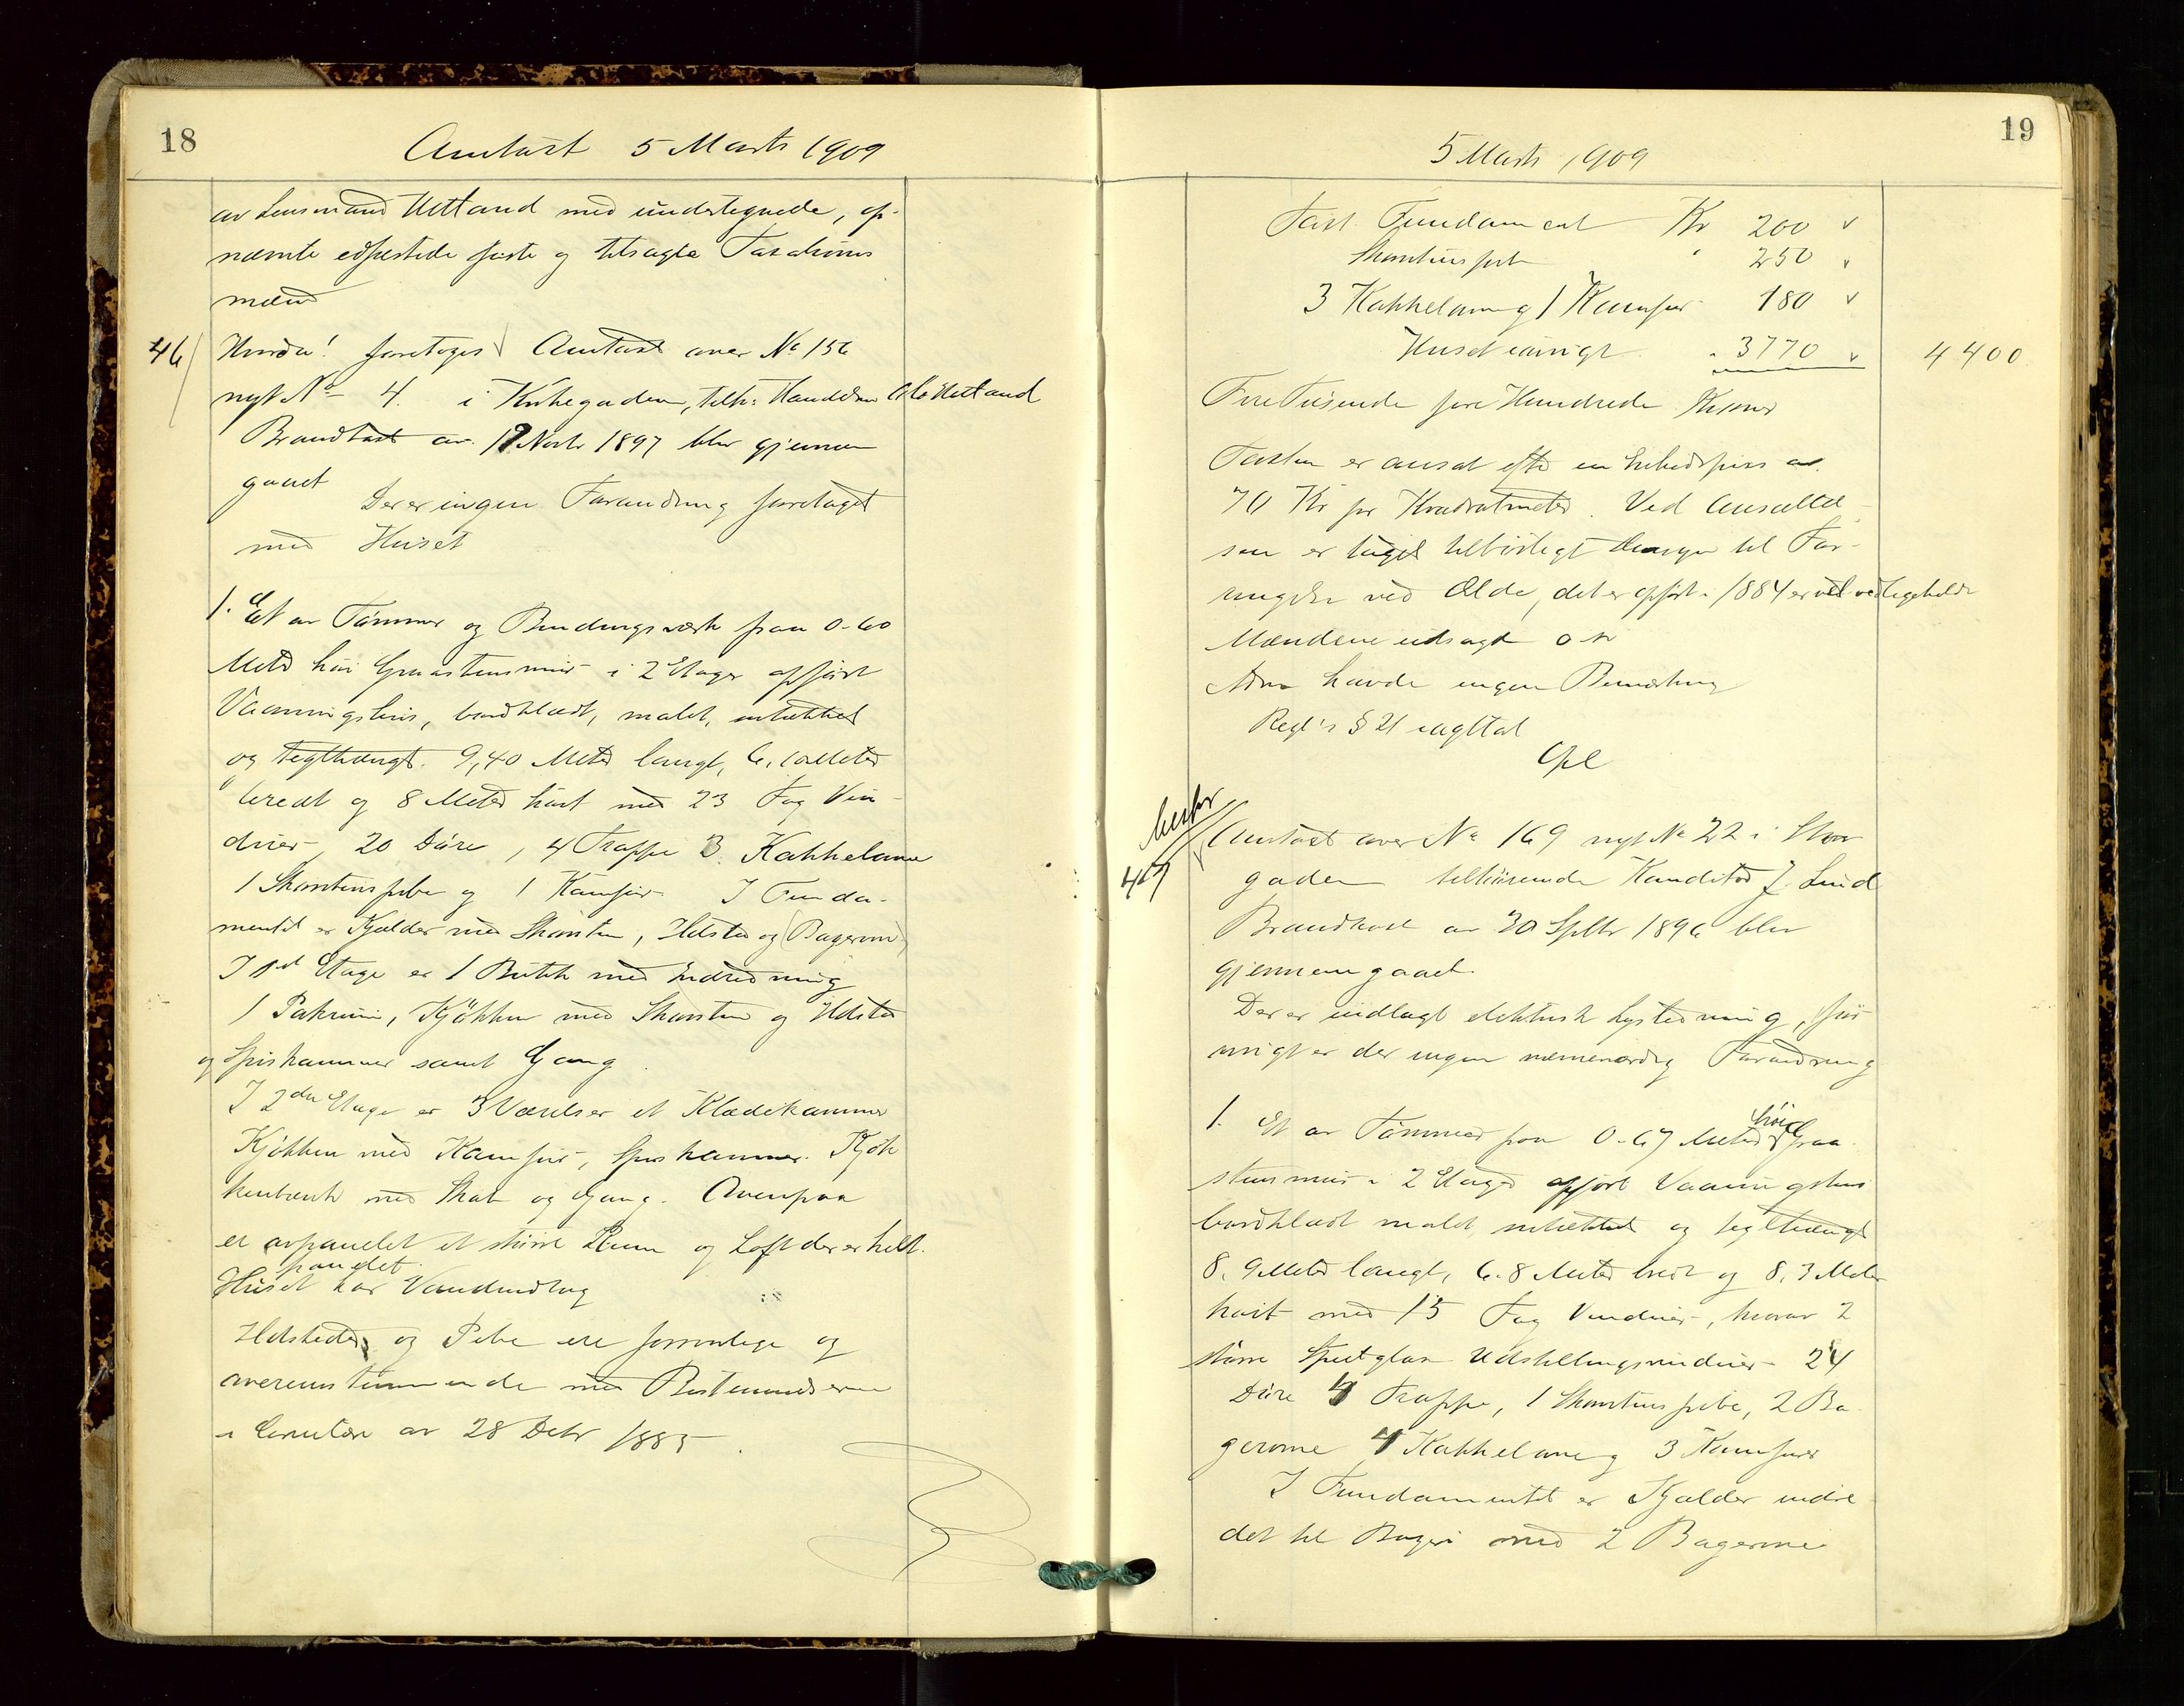 18
Omtaxt 5 Marts 1909
av Lensmand Uetland med undertegnede, op-
nævnte edfæstede faste og tilsagte Taxations
mænd
46 Hvorda! foretoges Omtaxt over No 156
nyt No 4 i Kirkegaden, tilh: Handelsm Uetland
Brandtaxt av 17 Novbr 1897 blev gjennem
gaaet
Der er ingen Forandring foretaget
med Huset
1. Et av Tømmer og Bindingsværk paa 0.60
Meter høi Graastensmur i 2 Etager opført
Vaaningshus, bordklædt, malt,
og teglhængt. 9,40 Meter langt, Meter
bredt og 8 Meter høit med 23 Fag Vin-
duer, 20 Døre, 4 Trappe 3 Kakkelovne
1 Skorstenspibe og 1 Komfur I Funda-
mentet er Kjælder med Skorsten, Ildsted og Bagerovn
I 1ste Etage er 1 Butik med Indredning
1 Pakrum, Kjøkken med Skorsten og Ildsted
og Spiskammer samt Gang
I 2den Etage er 3 Værelser et Klædekammer
Kjøkken med Komfur, Spiskammer. Kjøk
kenbænk med Skab og Gang. Ovenpaa
er avpanelet et større Rum og Loft der er helt
panelet.
Huset har Vandindlæg
Ildsteder og Pibe ere forsvarlige og
overensstemmende med Bestemmelserne
i Cirkulære av 28 Debr 1885.
19
5 Marts 1909
Taxt. Fundament Kr 200
Skorstenspibe " 250
3 Kakkelovne og 1 Komfur 180
Huset iøvrigt " 3770 4400
Fire Tusende fire Hundrede Kroner
Taxten er ansat efter en Enhedspris av
70 Kr pr Kvadratmeter. Ved Ansættel-
sen er taget tilbørligt Hensyn til For-
ringelse ved Ælde, det er opført i 1884 er vel vedligeholdt
Mændene udsagt o s v
havde ingen Bemærkning
Regl's § 21 iagttat
47 Omtaxt over No 169 nyt No 22 i Stor
gaden tilhørende Konditor J. Lund
Brandtaxt av 30 Septbr 1896 blev
gjennemgaaet.
Der er indlagt elektrisk Lysledning, før
øvrigt er der ingen nævneværdig Forandring
1. Et av Tømmer paa 0.67 Meter høi Graa-
stensmur i 2 Etager opført Vaaningshus
bordklædt malt, og teglhængt
8,9 Meter langt, 6.8 Meter bredt og 8,3 Meter
høit med 15 Fag Vinduer, hvorav 2
større Speilglas Udstillingsvinduer 24
Døre 4 Trappe, 1 Skorstenspibe, 2 Ba-
gerovne 4 Kakkelovne og 3 Komfurer
I Fundamentet er Kjælder indre
det til Bageri med 2 Bagerovne